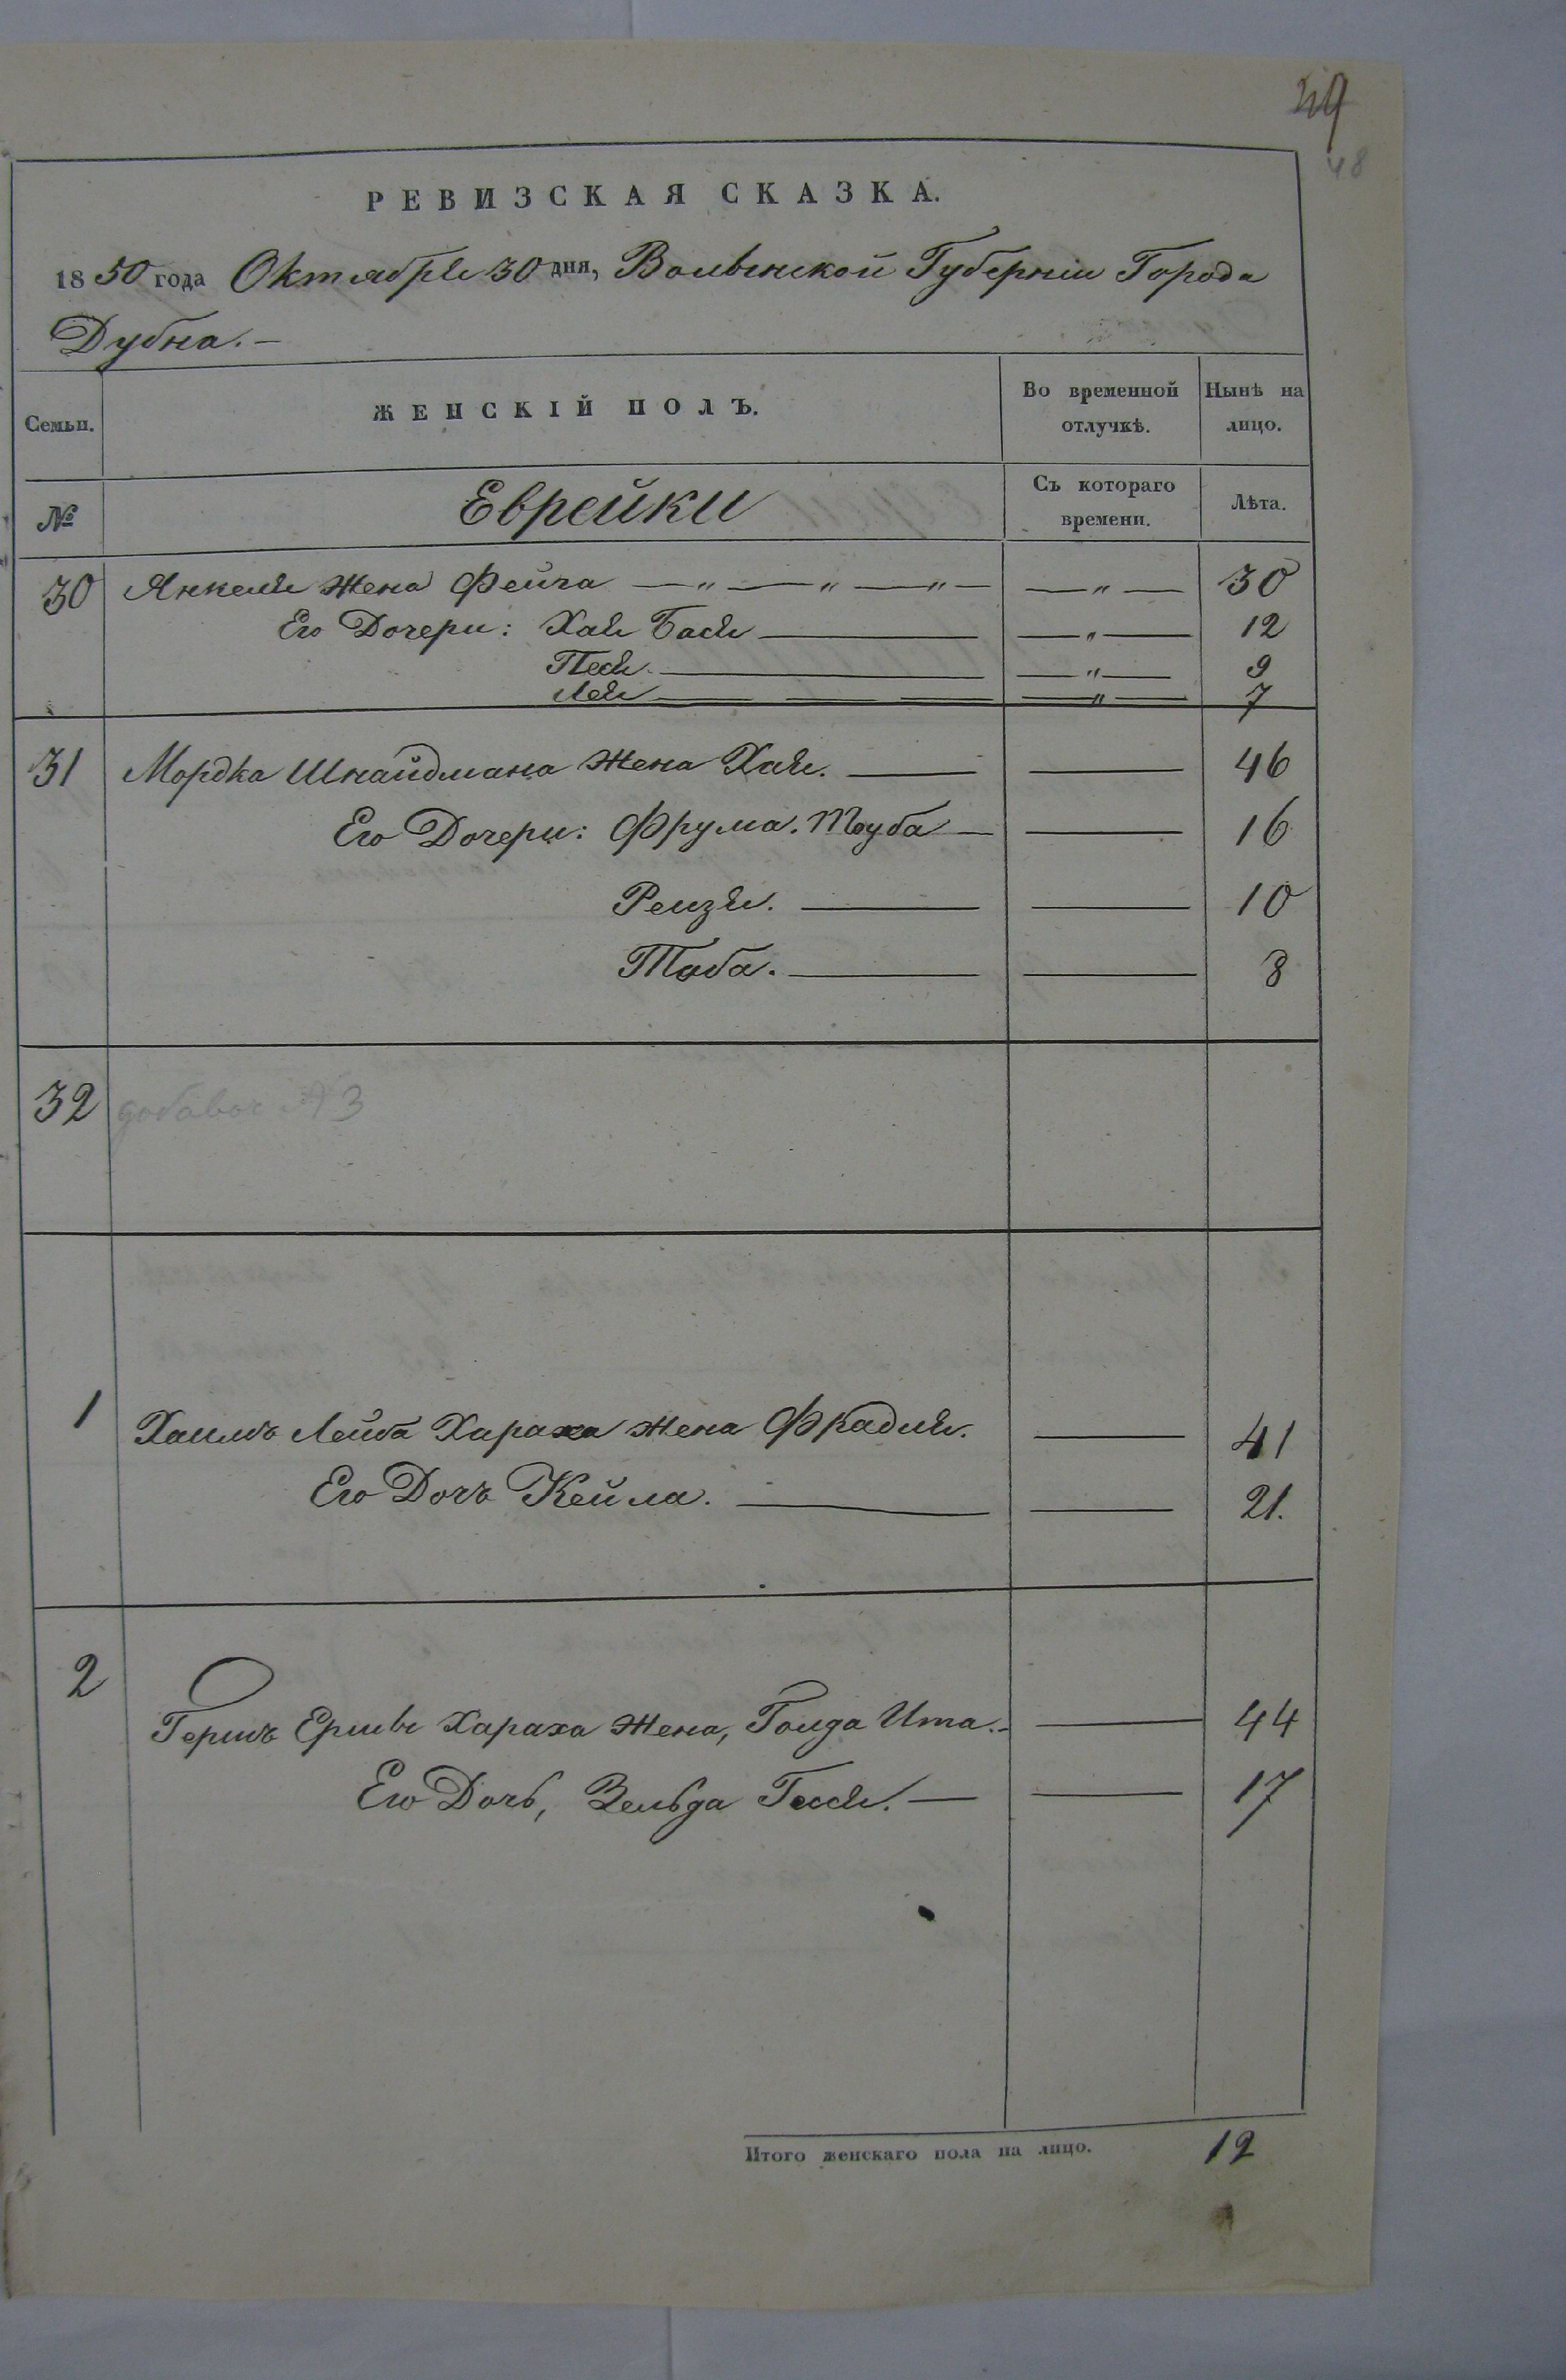 49
48
РЕВИЗСКАЯ СКАЗКА.
1850 года Октября 30 дня, Волынской Губерніи Города
Дубна.—
Семьи. ЖЕНСКІЙ ПОЛЪ. Во временной отлучкѣ. Нынѣ на лицо.
№ Еврейки Съ котораго времени. Лѣта.
30 Янкеля жена Фейга — " — " — " — — " — 30
Его Дочери: Хая Бася — — " — 12
Песя. — — " — 9
Лея — — — — " — 7
31 Мордка Шнайдмана жена Хая. — — 46
Его Дочери: Фрума. Тоуба — — 16
Рейзя. — — 10
Тоба. — — 8
32 добавоч № 3
1 Хаимъ Лейба Хараха жена Фрадля. — 41
Его Дочъ Кейла. — — 21.
2 Гершъ Ершъ Хараха жена, Голда Ита.— — 44
Его Дочь, Зельда Гися. — — 17
Итого женскаго пола на лицо. 12